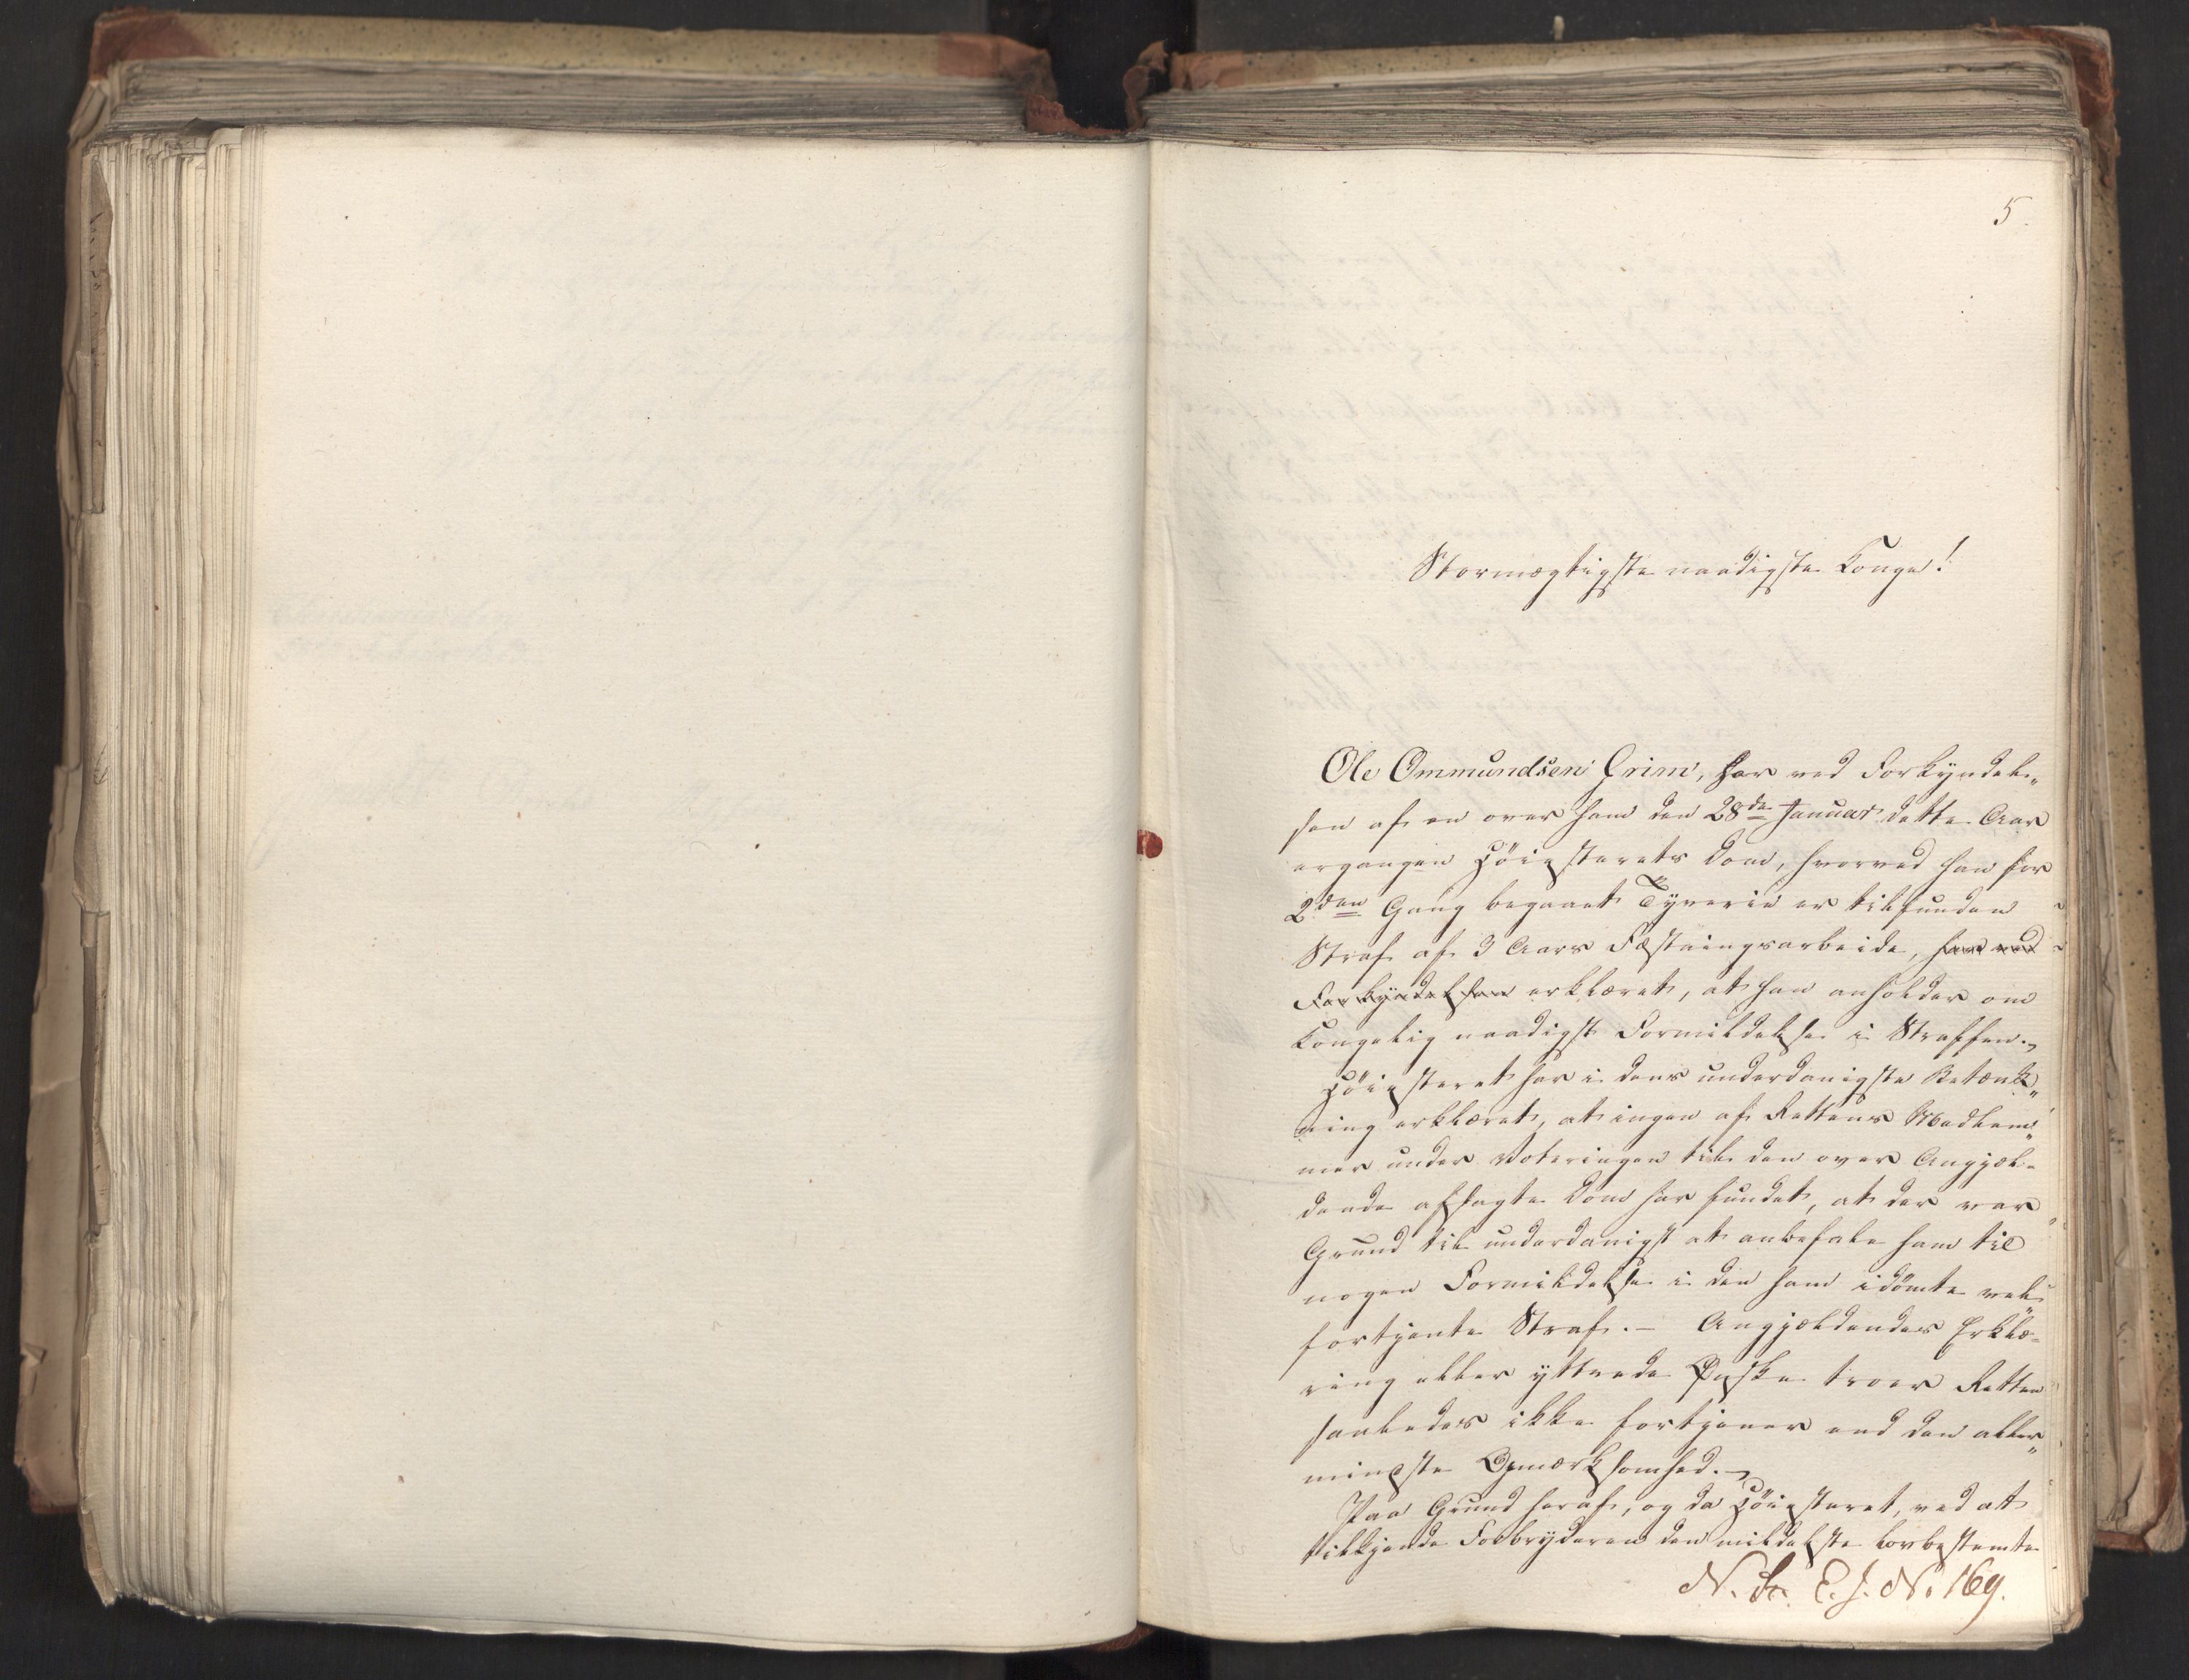 5.
Stormægtigste naadigste Konge!
Ole Ommundsen Grim, har ved Forkyndel„
sen af en over ham den 28de Januar dette Aar
ergangen Høiesterets Dom, hvorved han for
2den Gang begaaet Tyverie er tilfunden
Straf af 3 Aars Fæstningsarbeide, har ved
Forkyndelsen erklæret, at han anholder om
Kongelig naadigst Formildelse i Straffen.
Høiesteret har i dens underdanigste Betænk„
ning erklæret, at ingen af Rettens Medlem„
mer under Voteringen til den over Angjæl-
dende afsagte Dom har fundet, at der var
Grund til underdanigst at anbefale ham til
nogen Formildelse i den ham idømte vel
fortjente Straf. — Angjældendes Erklæ-
ring eller yttrede Ønske troer Retten
saaledes ikke fortjener end den aller„
mindste Opmærksomhed.
Paa Grund heraf, og da Høiesteret, ved at
tilkjende Forbryderen den mildeste lovbestemte
N. St. E. J. No 169.